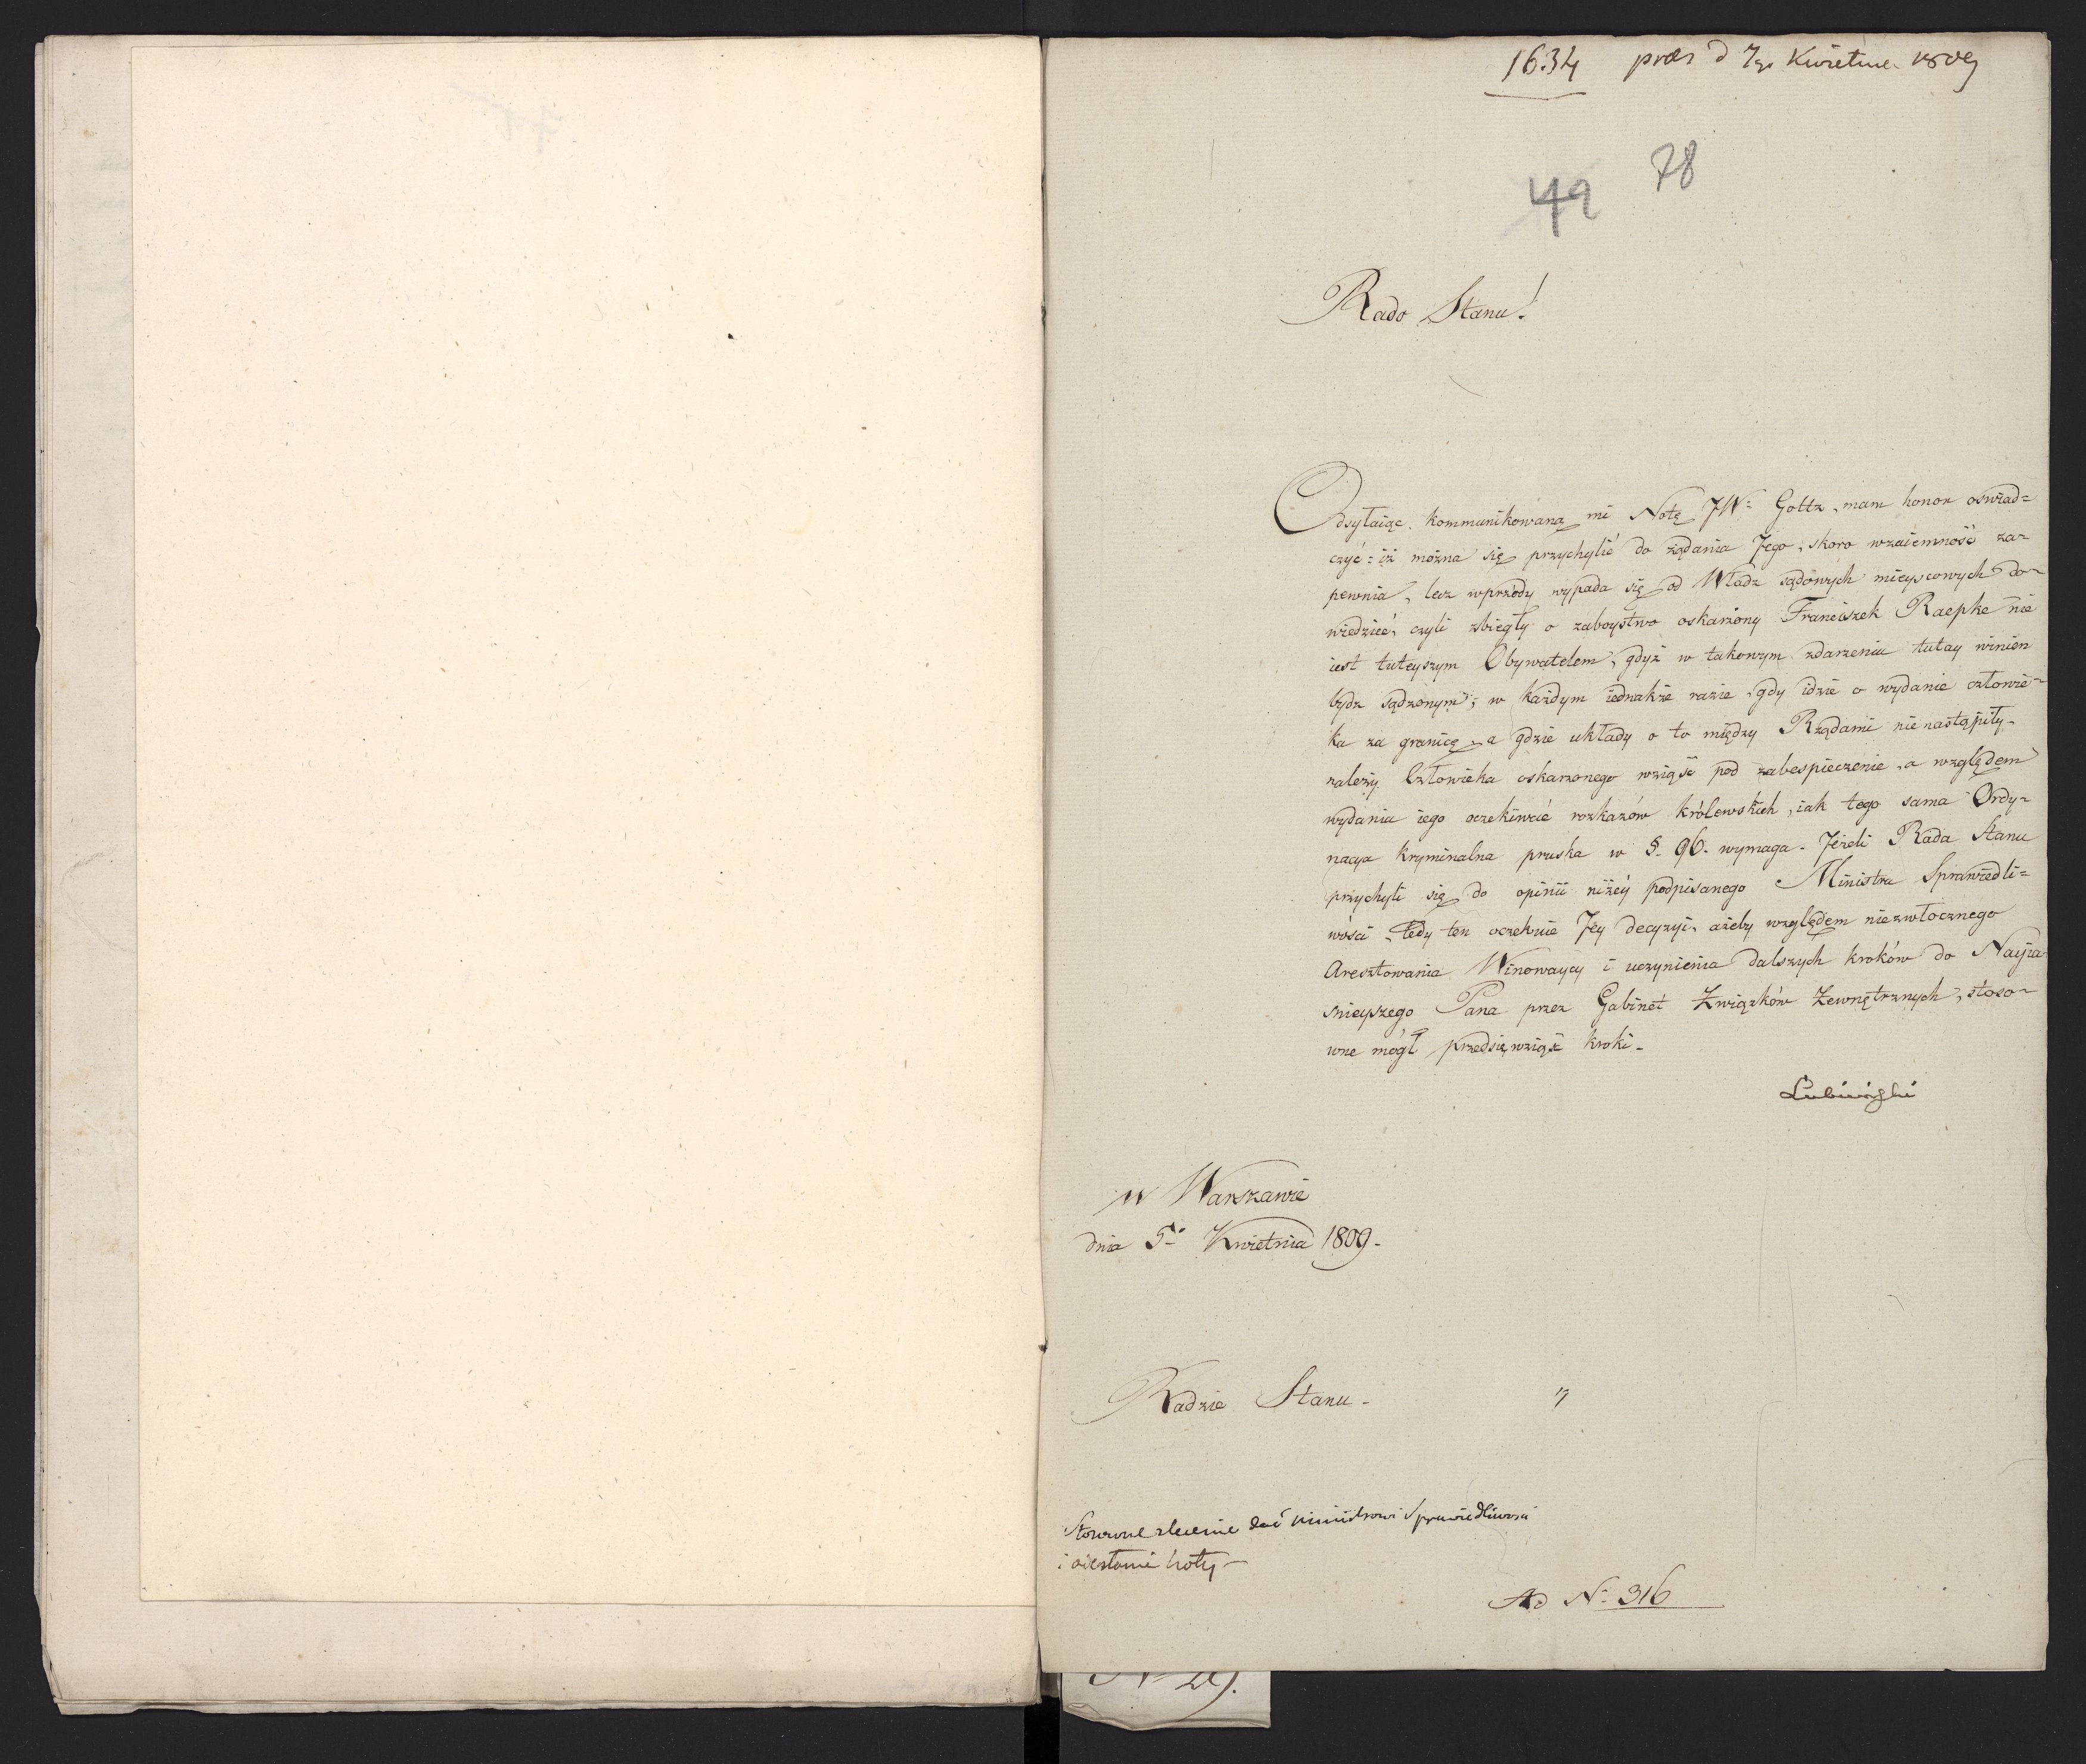 1634 præs d 7go Kwietnia 1809
78
49
Rado Stanu!
Odsyłaiąc kommunikowaną mi Notę JW: Goltz, mam honor oswiad=
czyć: iż można się przychylić do żądania Jego, skoro wzaiemność za=
pewnia, lecz wprzódy wypada się od Władz sądowych mieyscowych do=
wiedzieć, czyli zbiegły o zaboystwo oskarżony Franciszek Raepke nie
iest tuteyszym Obywatelem, gdyż w takowym zdarzeniu tutay winien
bydz sądzonym; w każdym iednakże razie, gdy idzie o wydanie człowie=
ka za granicę, a gdzie układy o to między Rządami nie nastąpiły,
należy Człowieka oskarzonego wziąść pod zabespieczenie, a względem
wydania iego oczekiwać rozkazów królewskich, iak tego sama Ordy=
nacya kryminalna pruska w §. 96. wymaga. Jeżeli Rada Stanu
przychyli się do opinii niżéy podpisanego Ministra Sprawiedli=
wości, tedy ten oczekuie Jey decyzyi, ażeby względem niezwłocznego
Aresztowania Winowaycy i uczynienia dalszych kroków do Nayia=
śnieyszego Pana przez Gabinet Związków Zewnętrznych, stoso=
wne mógł przedsięwziąść kroki.
Lubieński
w Warszawie
dnia 5o Kwietnia 1809.
Radzie Stanu. "
Stosowne zlecenie dać Ministrowi Sprawiedliwosci
i odesłanie Noty
Ad No: 316
No 29.